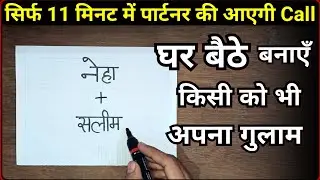 सिर्फ 11 मिनट में पार्टनर की आएगी Call
घर बैठे बनाएँ
किसी को भी
अपना गुलाम
नेहा
+
सलीम